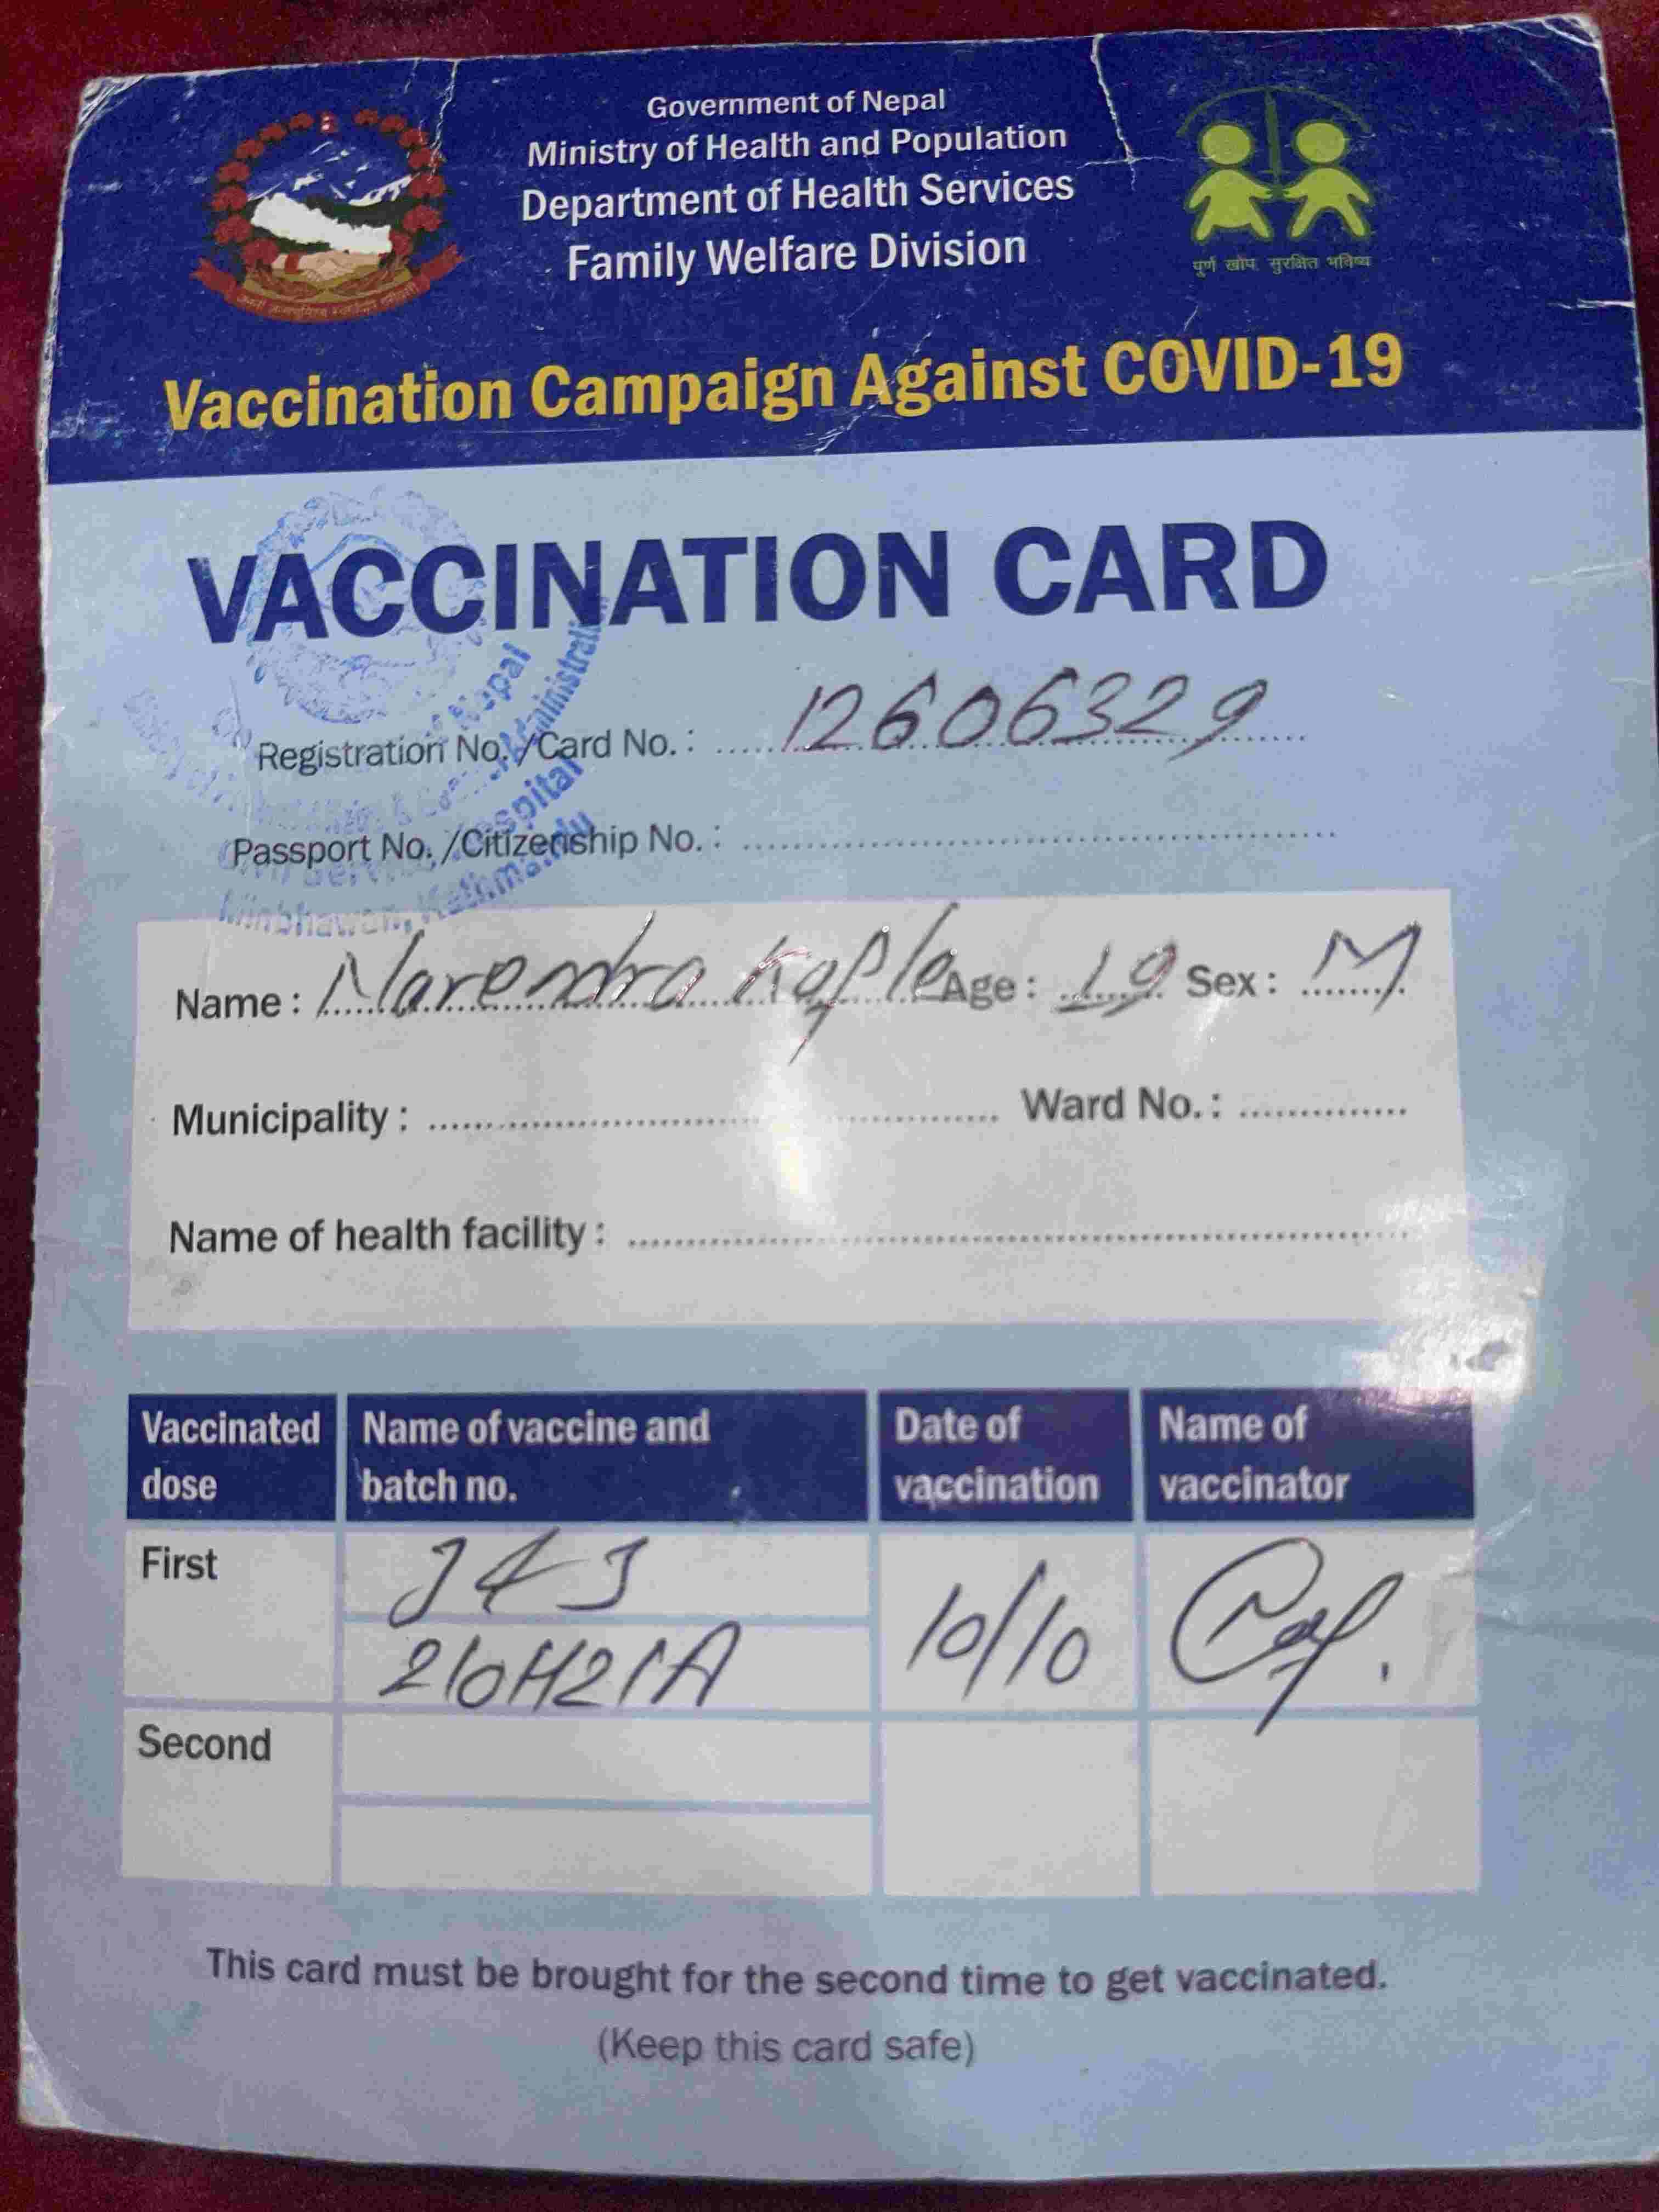 Government of Nepal
Ministry of Health and Population
Department of Health Services
Family Welfare Division
पुर्ण खोप सुरक्षित भविष्य
Vaccination Campaign Against COVID-19
VACCINATION CARD
Registration No./Card No.: 12606329
Passport No./Citizenship No.:
Nepal
Hospital
Minbhawan, Kathmandu
Name: Narendra Kafle Age: 19 Sex: M
Municipality: Ward No.:
Name of health facility:
Vaccinated dose
Name of vaccine and batch no.
Date of vaccination
Name of vaccinator
First
J&J
210H21A
10/10
Second
This card must be brought for the second time to get vaccinated.
(Keep this card safe)